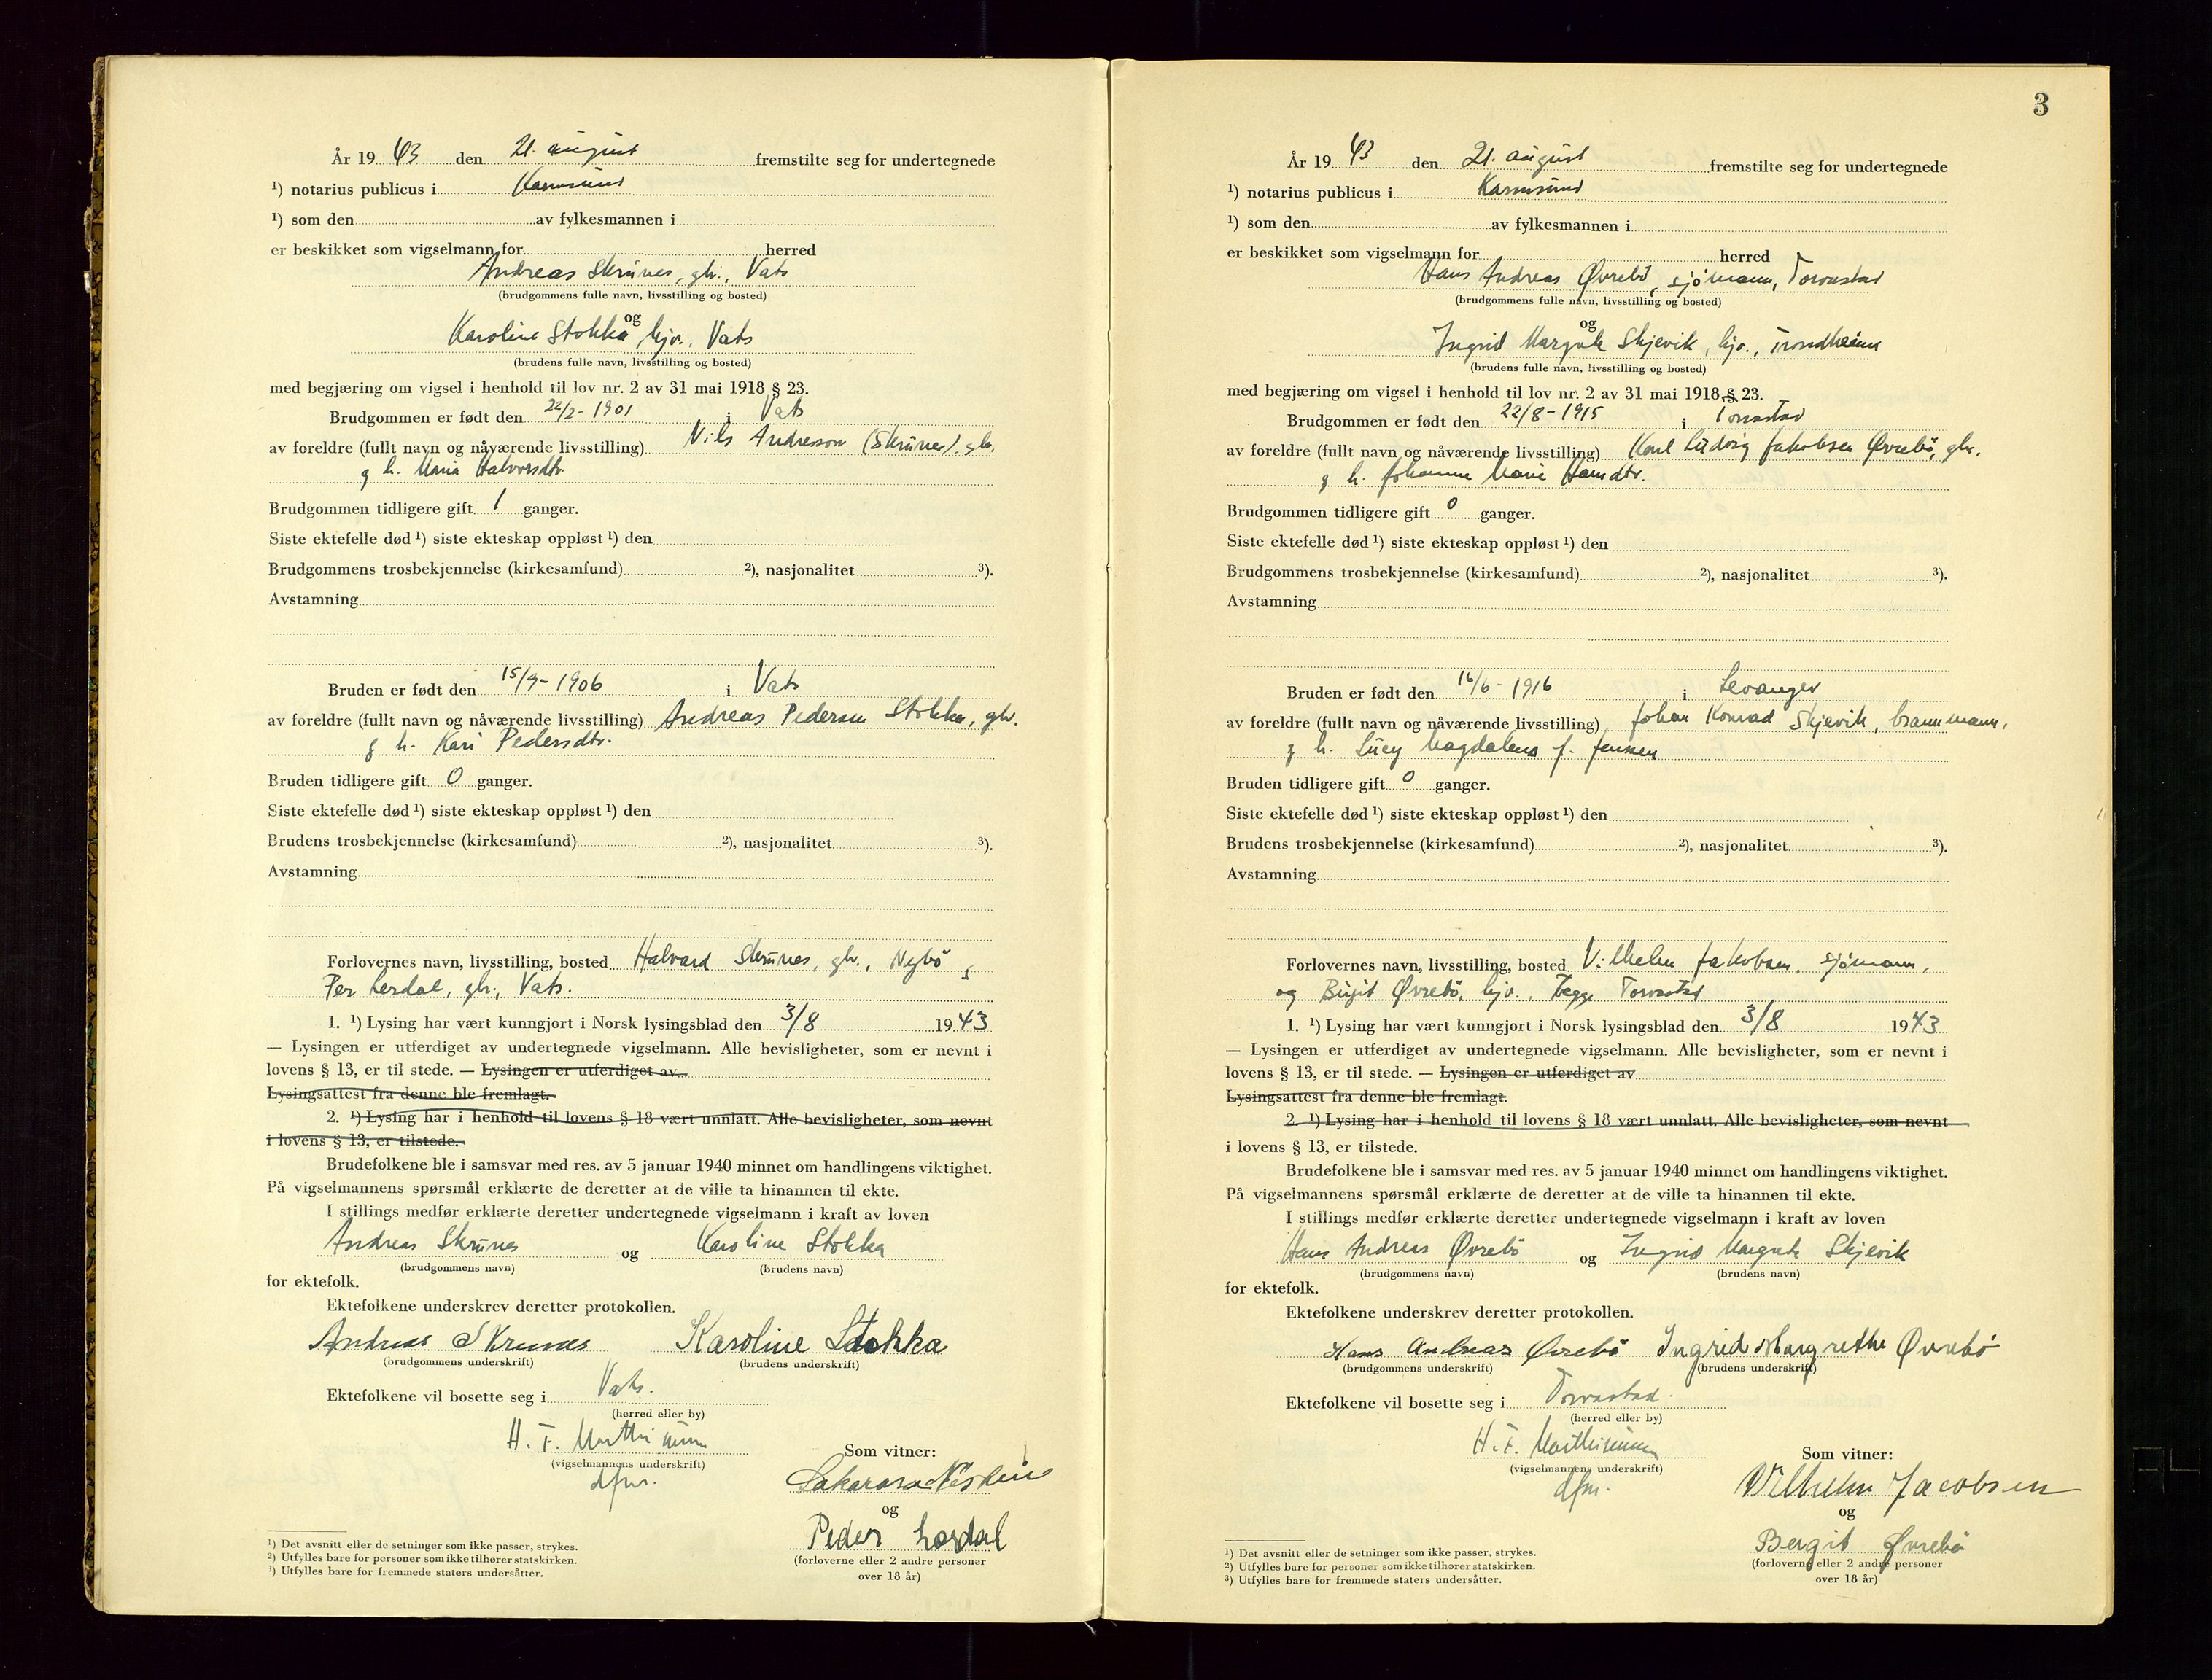 År 19 43 den 21. august fremstilte seg for undertegnede
¹) notarius publicus i Karmsund
¹) som den av fylkesmannen i
er beskikket som vigselmann for herred
Andreas Skrunes, gbr., Vats
(brudgommens fulle navn, livsstilling og bosted)
og
Karoline Stokka, hjv., Vats
(brudens fulle navn, livsstilling og bosted)
med begjæring om vigsel i henhold til lov nr. 2 av 31 mai 1918 § 23.
Brudgommen er født den 22/2 - 1901 i Vats
av foreldre (fullt navn og nåværende livsstilling) Nils Andresson (Skrunes), gbr.
g h. Maria Halvorsdtr.
Brudgommen tidligere gift 1 ganger.
Siste ektefelle død ¹) siste ekteskap oppløst ¹) den
Brudgommens trosbekjennelse (kirkesamfund) ²), nasjonalitet ³).
Avstamning
Bruden er født den 15/9 - 1906 i Vats
av foreldre (fullt navn og nåværende livsstilling) Andreas Pedersen Stokka, gbr.
g h. Kari Pedersdtr.
Bruden tidligere gift 0 ganger.
Siste ektefelle død ¹) siste ekteskap oppløst ¹) den
Brudens trosbekjennelse (kirkesamfund) ²), nasjonalitet ³).
Avstamning
Forlovernes navn, livsstilling, bosted Halvard Skrunes, gbr., Nybö g
Per Lerdal, gbr., Vats.
1. ¹) Lysing har vært kunngjort i Norsk lysingsblad den 3/8 1943
— Lysingen er utferdiget av undertegnede vigselmann. Alle bevisligheter, som er nevnt i
lovens § 13, er til stede. — Lysingen er utferdiget av
Lysingsattest fra denne ble fremlagt.
2. ¹) Lysing har i henhold til lovens § 18 vært unnlatt. Alle bevisligheter, som nevnt
i lovens § 13, er tilstede.
Brudefolkene ble i samsvar med res. av 5 januar 1940 minnet om handlingens viktighet.
På vigselmannens spørsmål erklærte de deretter at de ville ta hinannen til ekte.
I stillings medfør erklærte deretter undertegnede vigselmann i kraft av loven
Andreas Skrunes og Karoline Stokka
(brudgommens navn) (brudens navn)
for ektefolk.
Ektefolkene underskrev deretter protokollen.
Andreas Skrunes Karoline Stokka
(brudgommens underskrift) (brudens underskrift)
Ektefolkene vil bosette seg i Vats.
(herred eller by)
H. F. Marthinussen
(vigselmannens underskrift)
dfm.
Som vitner:
og
Peder Lærdal
(forloverne eller 2 andre personer
over 18 år)
¹) Det avsnitt eller de setninger som ikke passer, strykes.
²) Utfylles bare for personer som ikke tilhører statskirken.
³) Utfylles bare for fremmede staters undersåtter.
3
År 19 43 den 21. august fremstilte seg for undertegnede
¹) notarius publicus i Karmsund
¹) som den av fylkesmannen i
er beskikket som vigselmann for herred
Hans Andreas Øvrebö, sjömann, Torvastad
(brudgommens fulle navn, livsstilling og bosted)
og
Ingrid Margrete Skjevik, hjv., Trondheim
(brudens fulle navn, livsstilling og bosted)
med begjæring om vigsel i henhold til lov nr. 2 av 31 mai 1918 § 23.
Brudgommen er født den 22/8 - 1915 i Torvastad
av foreldre (fullt navn og nåværende livsstilling) Karl Ludvig Jakobsen Øvrebö, gbr.
g h. Johanne Marie Hansdtr.
Brudgommen tidligere gift 0 ganger.
Siste ektefelle død ¹) siste ekteskap oppløst ¹) den
Brudgommens trosbekjennelse (kirkesamfund) ²), nasjonalitet ³).
Avstamning
Bruden er født den 16/6 - 1916 i Levanger
av foreldre (fullt navn og nåværende livsstilling) Johan Konrad Skjevik, brannmann,
g h. Lucy Magdalena f. Jensen
Bruden tidligere gift 0 ganger.
Siste ektefelle død ¹) siste ekteskap oppløst ¹) den
Brudens trosbekjennelse (kirkesamfund) ²), nasjonalitet ³).
Avstamning
Forlovernes navn, livsstilling, bosted Vilhelm Jakobsen, sjömann,
og Birgit Øvrebö, hjv., begge Torvastad
1. ¹) Lysing har vært kunngjort i Norsk lysingsblad den 3/8 1943
— Lysingen er utferdiget av undertegnede vigselmann. Alle bevisligheter, som er nevnt i
lovens § 13, er til stede. — Lysingen er utferdiget av
Lysingsattest fra denne ble fremlagt.
2. ¹) Lysing har i henhold til lovens § 18 vært unnlatt. Alle bevisligheter, som nevnt
i lovens § 13, er tilstede.
Brudefolkene ble i samsvar med res. av 5 januar 1940 minnet om handlingens viktighet.
På vigselmannens spørsmål erklærte de deretter at de ville ta hinannen til ekte.
I stillings medfør erklærte deretter undertegnede vigselmann i kraft av loven
Hans Andreas Øvrebö og Ingrid Margrete Skjevik
(brudgommens navn) (brudens navn)
for ektefolk.
Ektefolkene underskrev deretter protokollen.
Hans Andreas Øvrebö Ingrid Margrethe Øvrebö
(brudgommens underskrift) (brudens underskrift)
Ektefolkene vil bosette seg i Torvastad.
(herred eller by)
H. F. Marthinussen
(vigselmannens underskrift)
dfm.
Som vitner:
Wilhelm Jacobsen
og
Bergit Øvrebö
(forloverne eller 2 andre personer
over 18 år)
¹) Det avsnitt eller de setninger som ikke passer, strykes.
²) Utfylles bare for personer som ikke tilhører statskirken.
³) Utfylles bare for fremmede staters undersåtter.